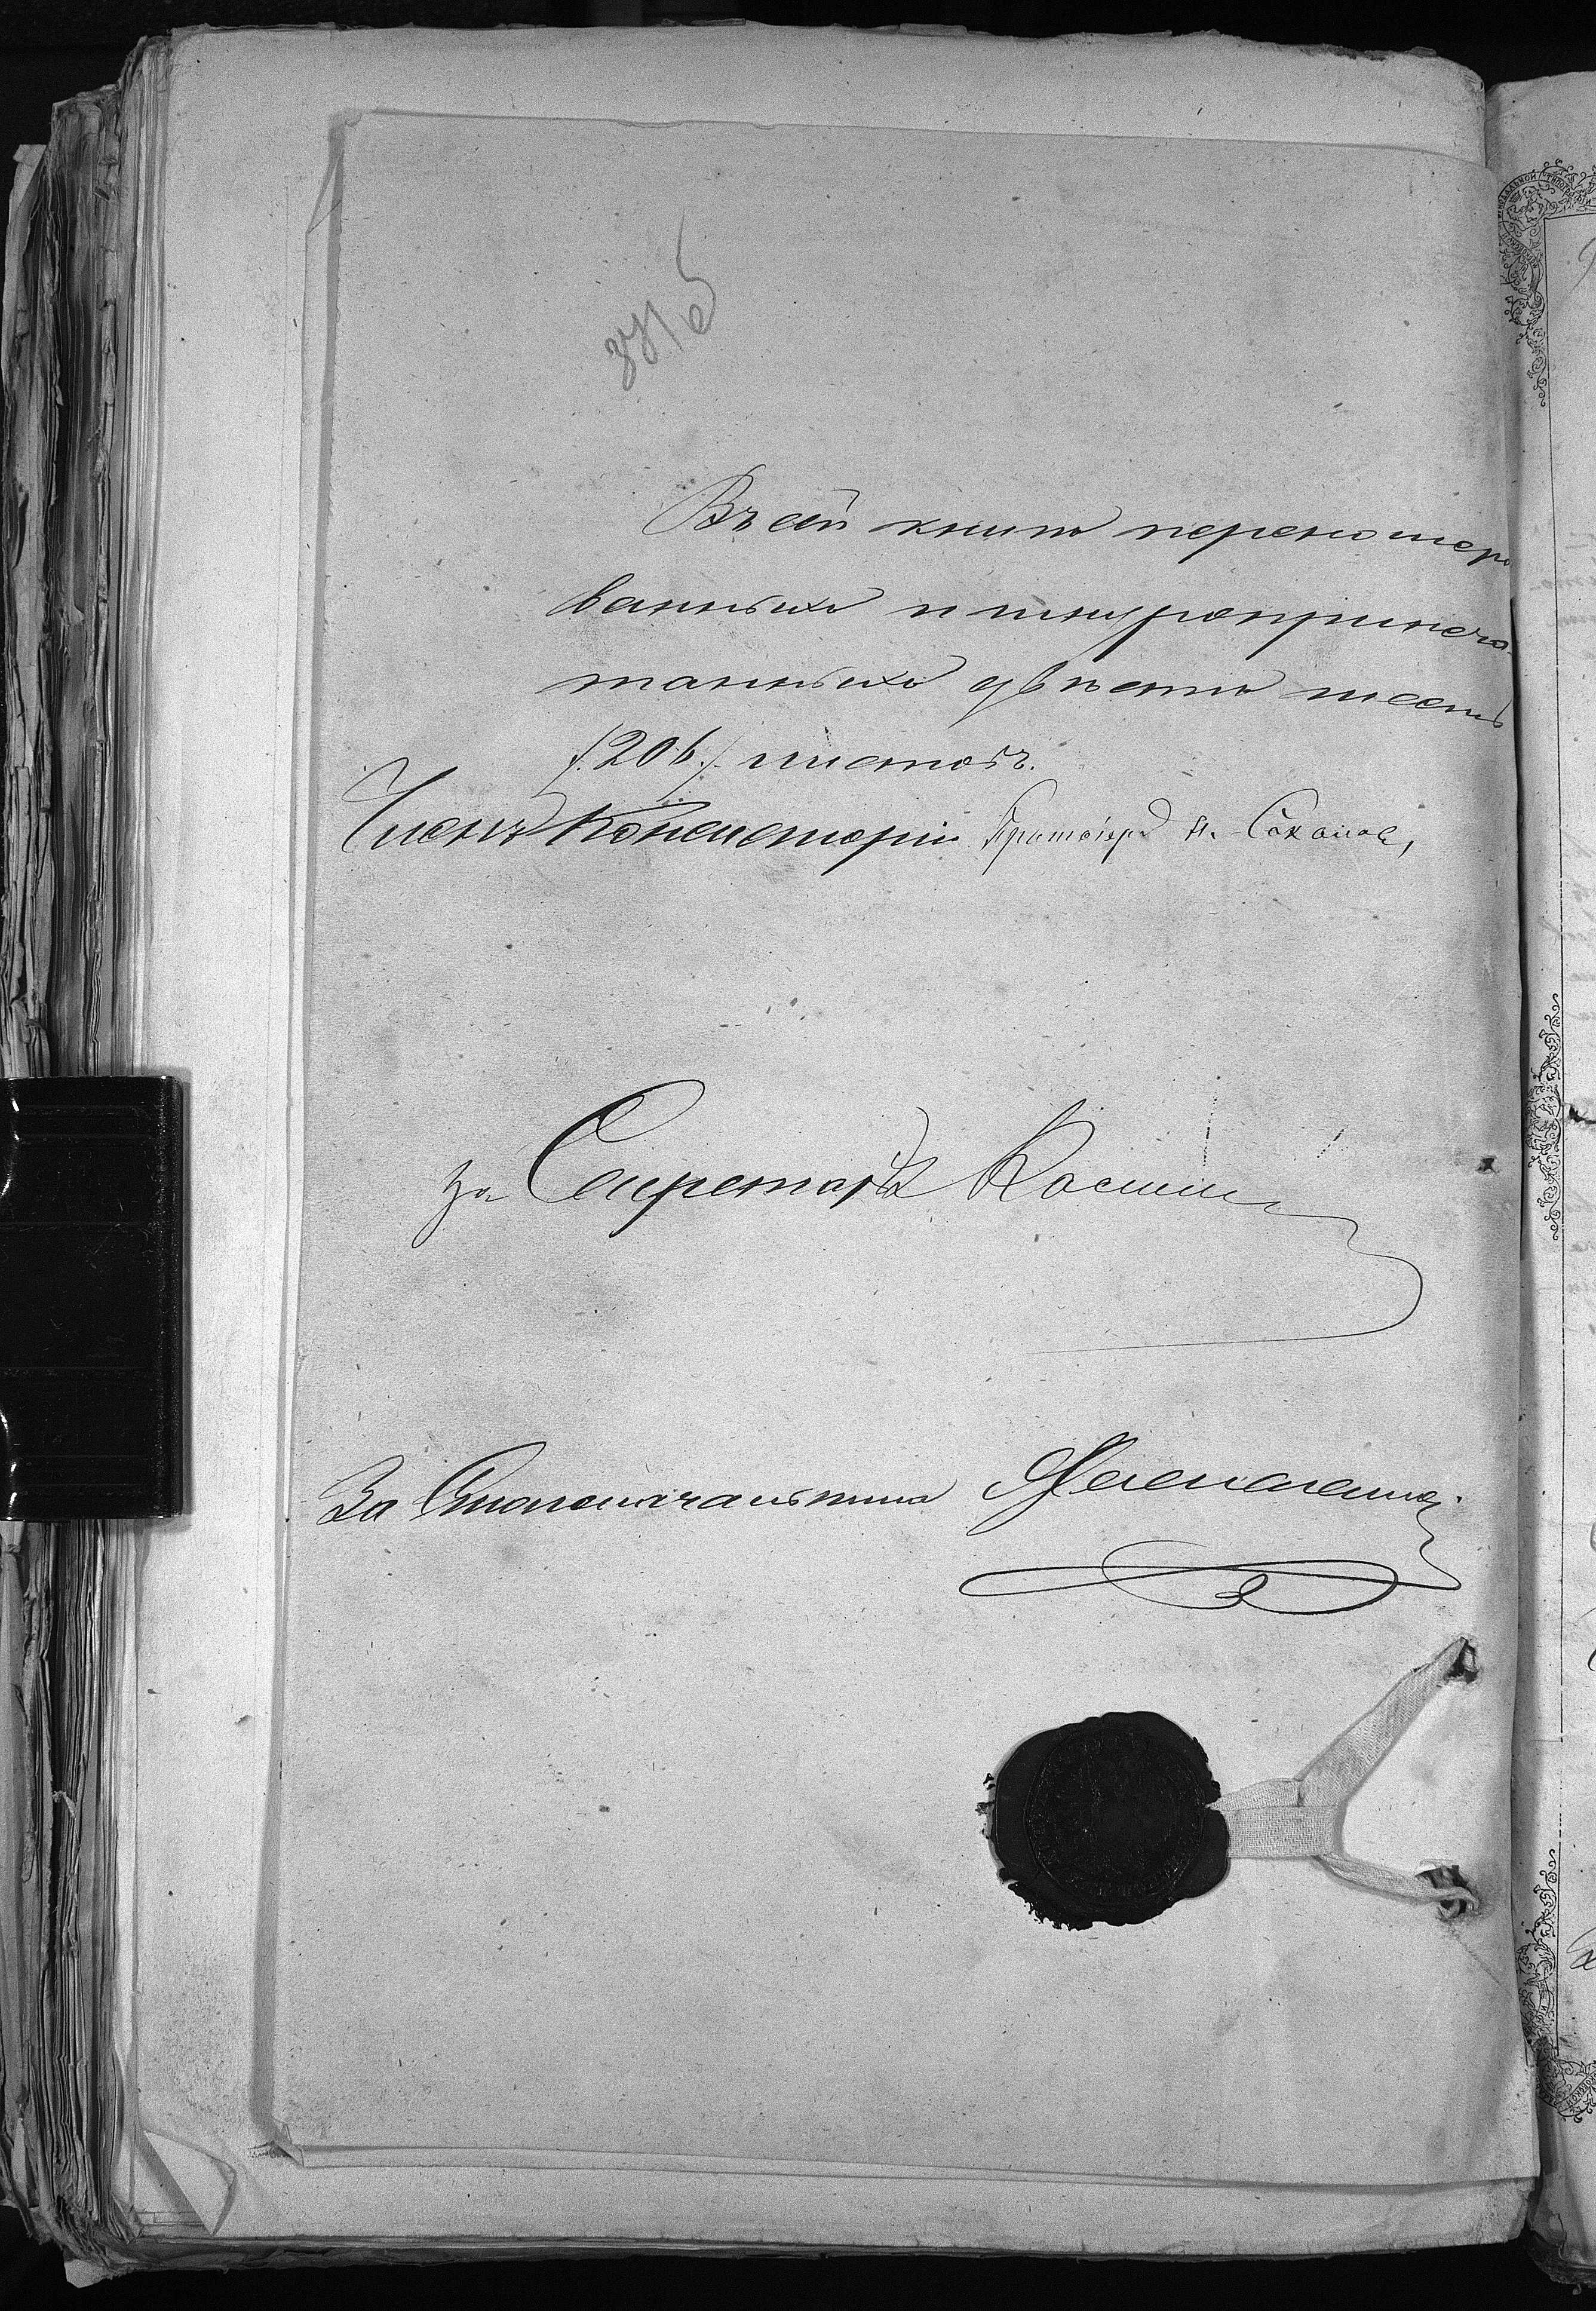 Въ сей книгѣ перенумеро
ванныхъ и шнуроприпеча-
танныхъ двѣсти шесть
/.206./ листовъ.
Членъ Консисторіи Протоіер. Н. Соколов,
За Секретаря
За Столоначальника